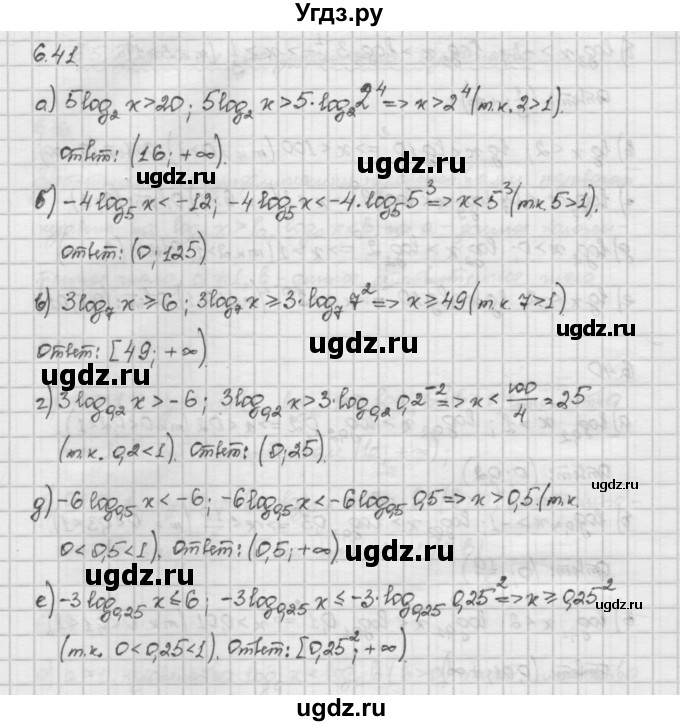 Угдз.ру
6.41
а) 5log₂ x>20; 5log₂ x>5·log₂2⁴=>x>2⁴(т.к. 2>1).
Ответ: (16; +∞).
ugdz.ru
ugdz.ru
б) -4log₅ x<-12; -4log₅ x<-4·log₅5³=>x<5³(т.к. 5>1).
Ответ: (0; 125)
в) 3log₇ x≥6; 3log₇ x≥3·log₇7²=>x≥49(т.к. 7>1)
ugdz.ru
ugdz.ru
Ответ: [49; +∞).
ugdz.ru
г) 3log₀,₂ x>-6; 3log₀,₂ x>3·log₀,₂0,2⁻²=>x<100/4=25
(т.к. 0,2<1). Ответ: (0; 25).
ugdz.ru
д) -6log₀,₅ x<-6; -6log₀,₅ x<-6log₀,₅0,5=>x>0,5.(т.к.
0<0,5<1). Ответ: (0,5; +∞)
ugdz.ru
ugdz.ru
е) -3log₀,₂₅ x≤6; -3log₀,₂₅ x≤-3·log₀,₂₅0,25⁻²=>x≥0,25⁻²
ugdz.ru
(т.к. 0<0,25<1). Ответ: [0,25²; +∞)
ugdz.ru
ugdz.ru